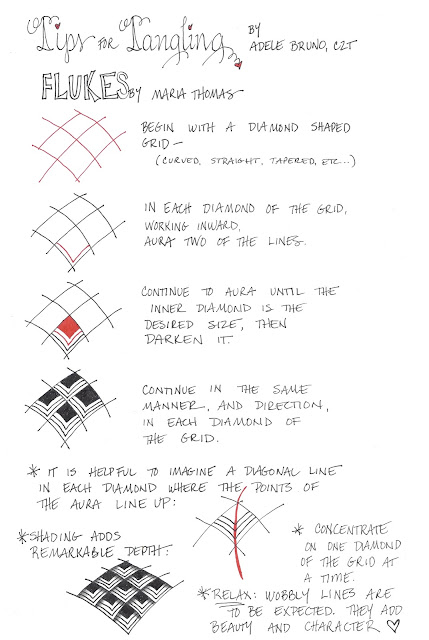 Tips for Tangling BY
ADELE BRUNO, CZT
FLUKES BY MARIA THOMAS
BEGIN WITH A DIAMOND SHAPED
GRID —
(CURVED, STRAIGHT, TAPERED, ETC...)
IN EACH DIAMOND OF THE GRID,
WORKING INWARD,
AURA TWO OF THE LINES.
CONTINUE TO AURA UNTIL THE
INNER DIAMOND IS THE
DESIRED SIZE, THEN
DARKEN IT.
CONTINUE IN THE SAME
MANNER, AND DIRECTION,
IN EACH DIAMOND OF
THE GRID.
* IT IS HELPFUL TO IMAGINE A DIAGONAL LINE
IN EACH DIAMOND WHERE THE POINTS OF
THE AURA LINE UP:
* SHADING ADDS
REMARKABLE DEPTH:
* CONCENTRATE
ON ONE DIAMOND
OF THE GRID AT
A TIME.
* RELAX: WOBBLY LINES ARE
TO BE EXPECTED. THEY ADD
BEAUTY AND CHARACTER ♡